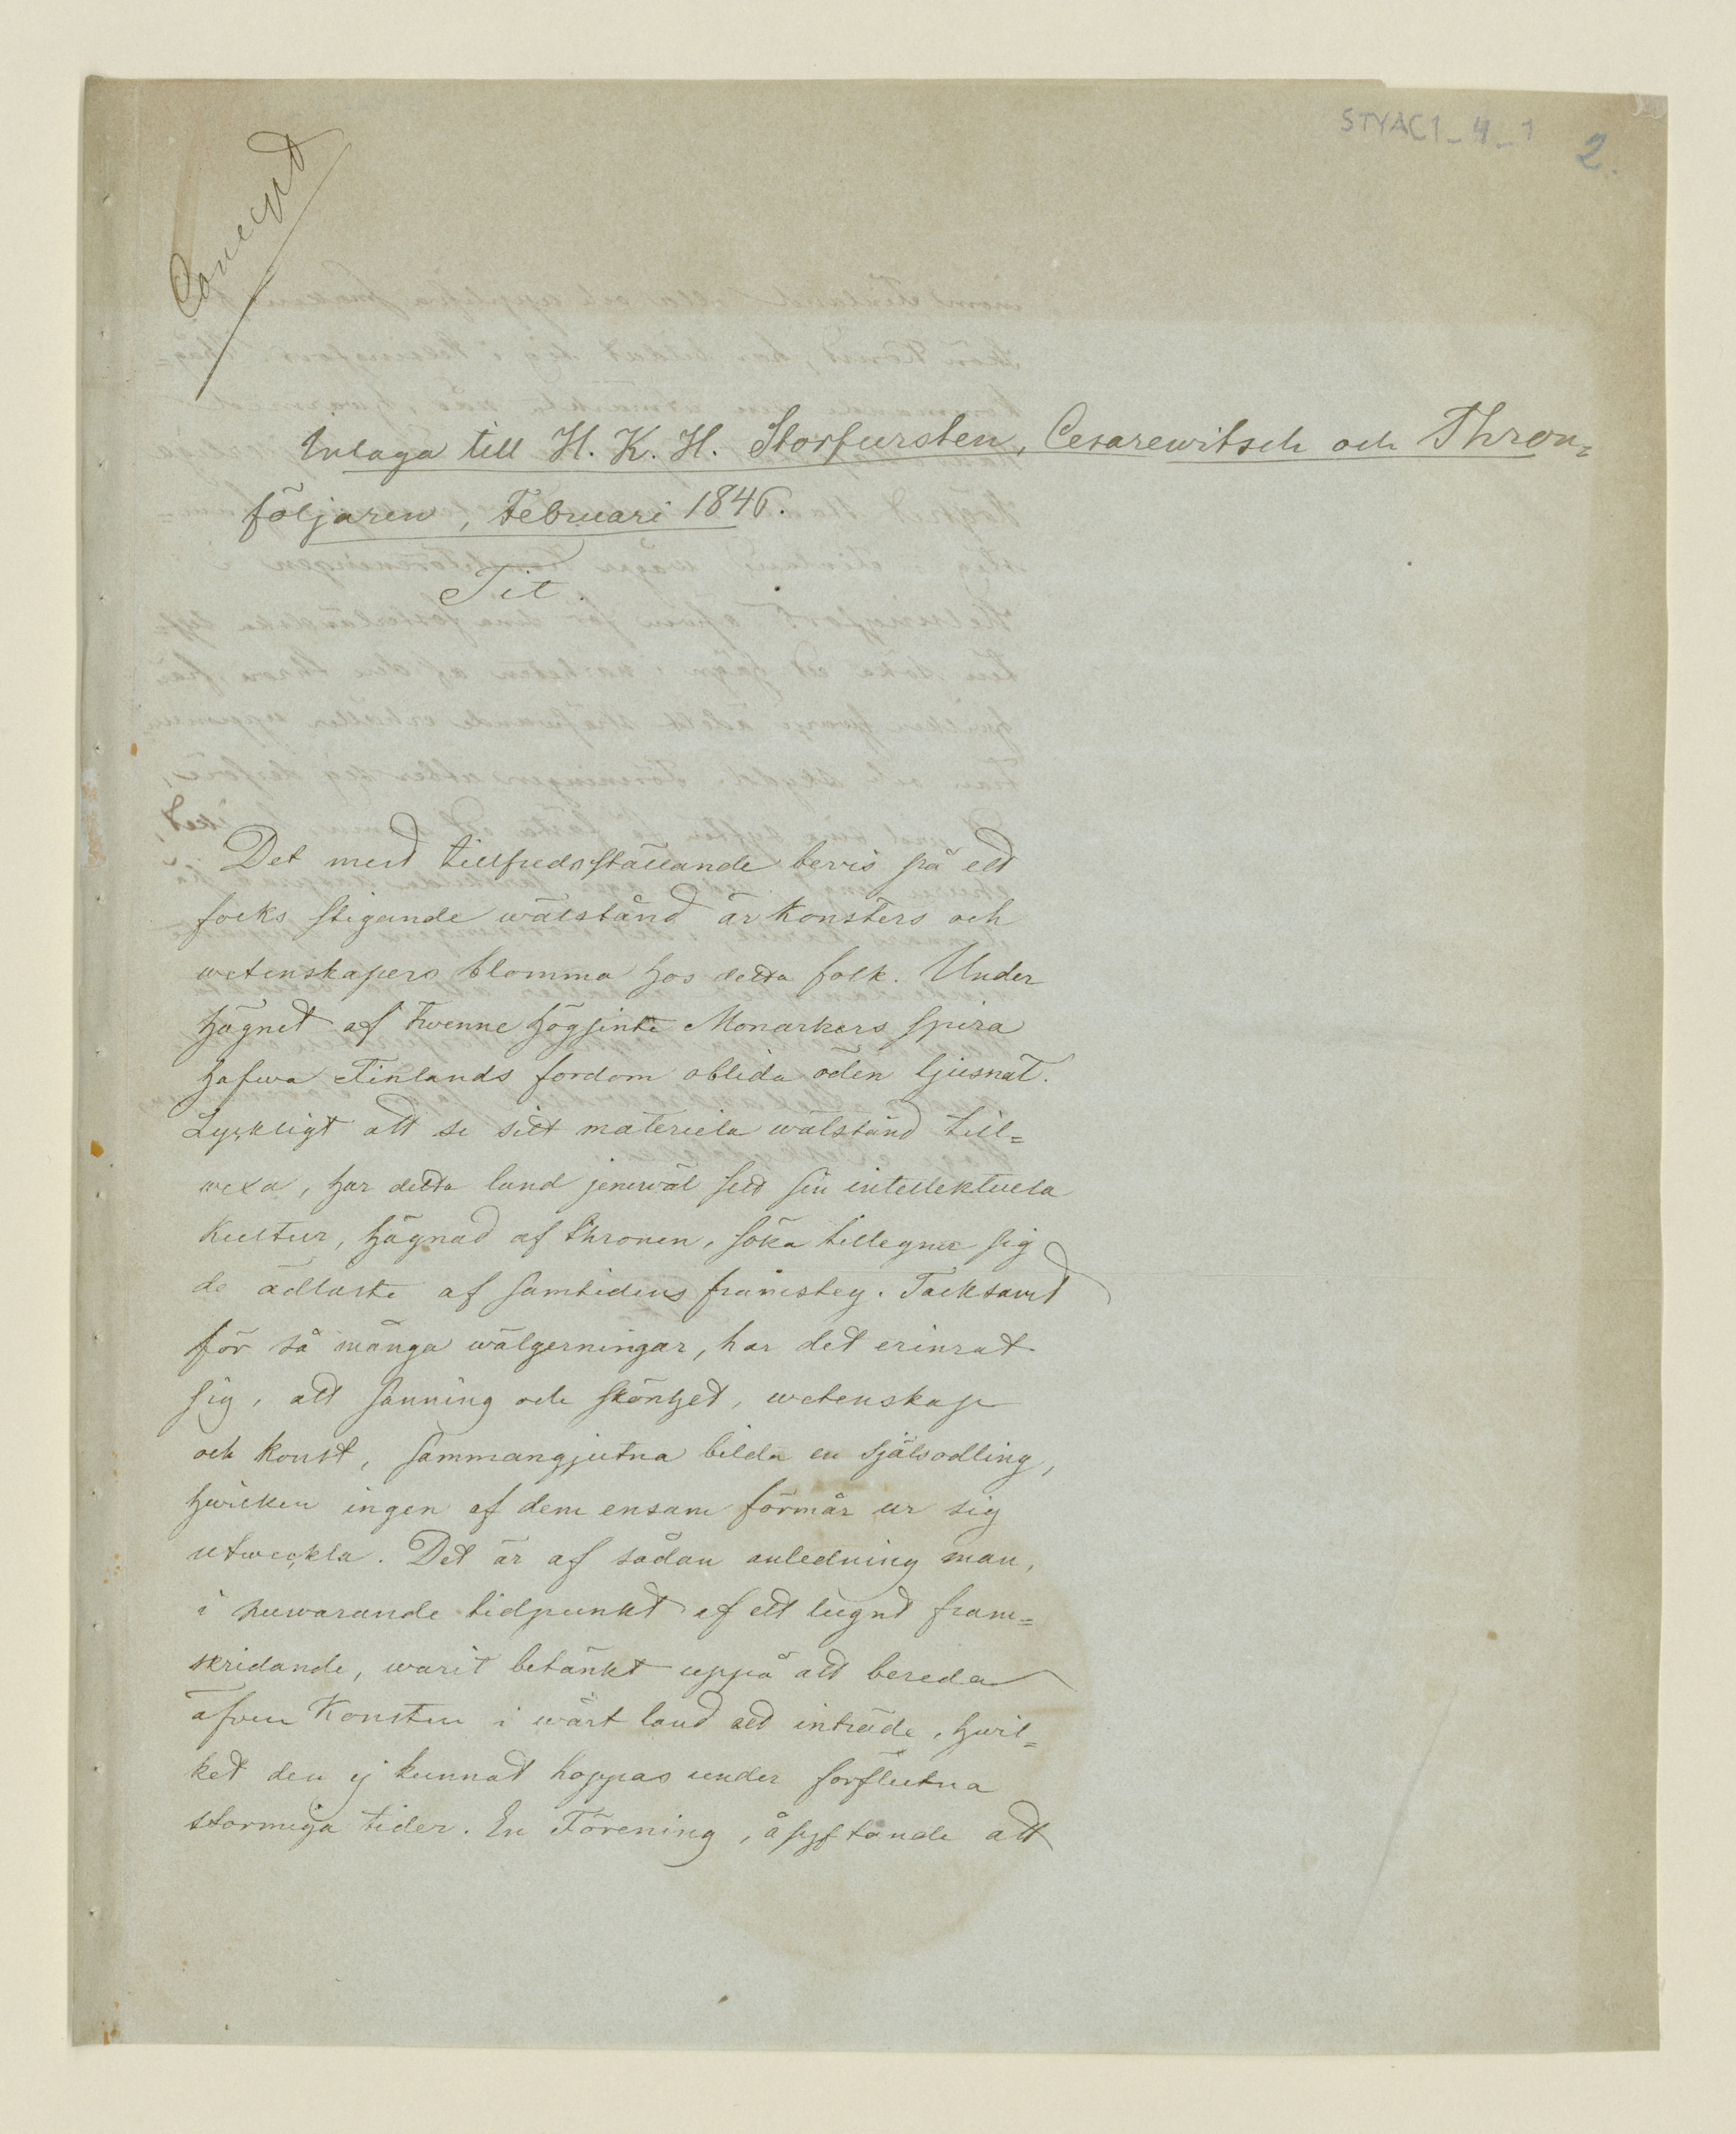 STYAC1_4_1 2.
Concept
Inlaga till H. K. H. Storfursten, Cesarewitsch och Thron=
följaren, Februari 1846.
Tit.
Det mest tillfredsställande bevis på ett
folks stigande wälstånd är konsters och
wetenskapers blomma hos detta folk. Under
hägnet af twenne högsinte Monarkers spira
hafwa Finlands fordom oblida öden ljusnat.
Lyckligt att se sitt materiela wälstånd till=
wexa, har detta land jemwäl sett sin intellektuela
kultur, hägnad af thronen, söka tillegna sig
de ädlaste af samtidens framsteg. Tacksamt
för så många wälgerningar, har det erinrat
sig, att sanning och skönhet, wetenskap
och konst, sammangjutna bilda en själsodling,
hwilken ingen af dem ensam förmår ur sig
utweckla. Det är af sådan anledning man,
i nuwarande tidpunkt af ett lugnt fram=
skridande, warit betänkt uppå att bereda
äfwen Konsten i wårt land ett inträde, hwil=
ket den ej kunnat hoppas under förflutna
stormiga tider. En Förening, åsyftande att